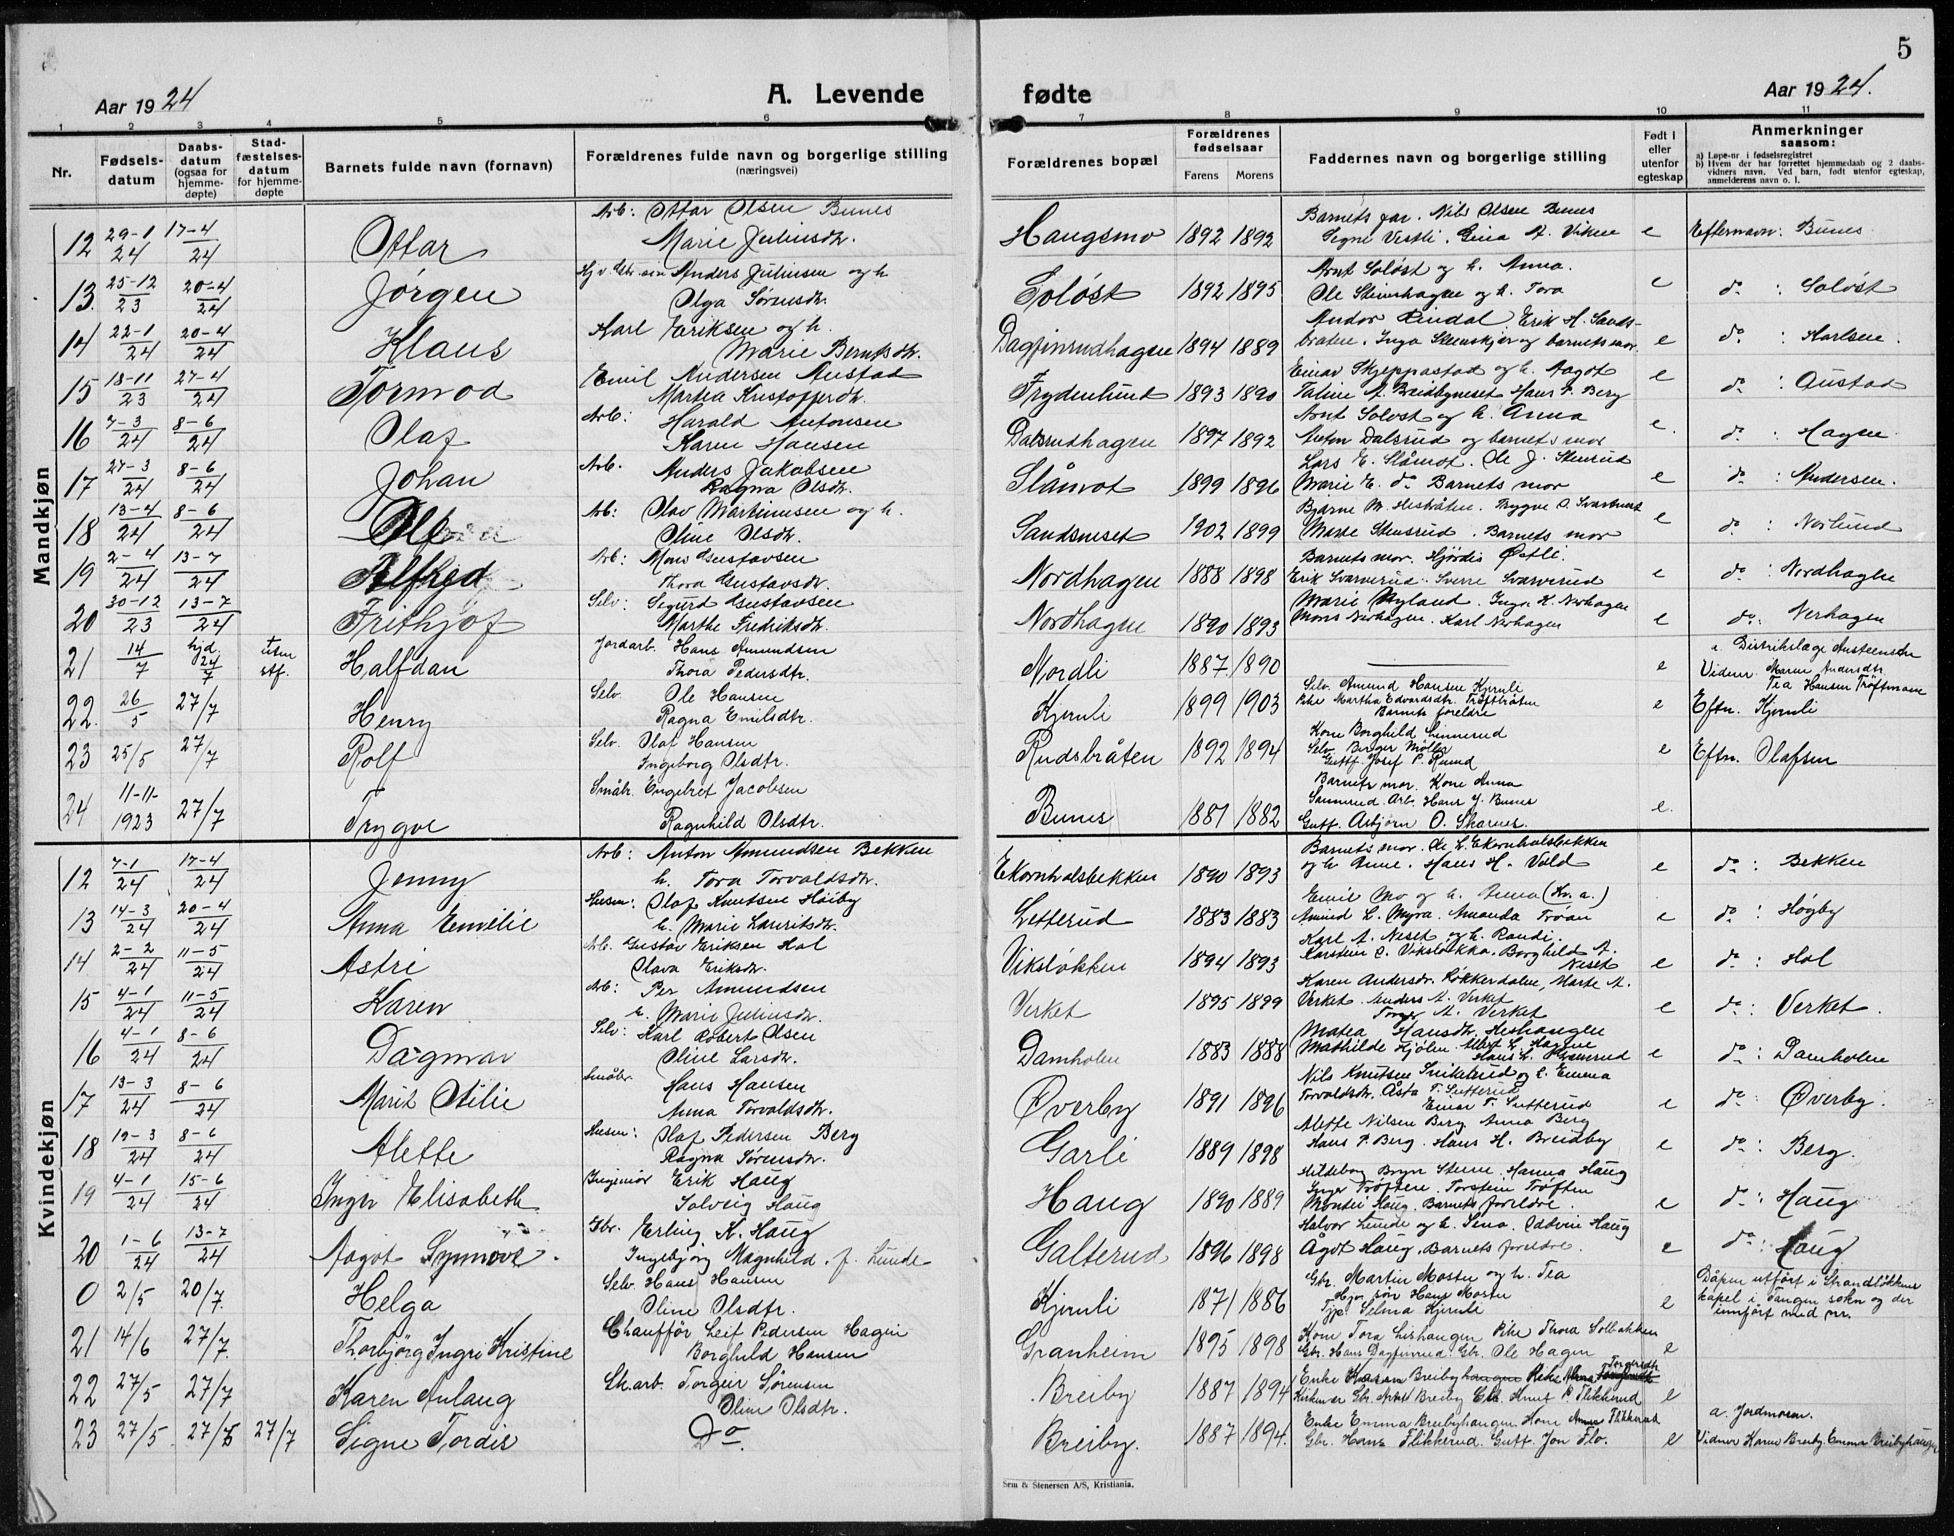 5
Aar 1924 A. Levende fødte Aar 1924.
1 2 3 4 5 6 7 8 9 10 11
Nr. Fødsels-datum Daabs-datum (ogsaa for hjemme-døpte) Stad-fæstelses-datum for hjemme-døpte Barnets fulde navn (fornavn) Forældrenes fulde navn og borgerlige stilling (næringsvei) Forældrenes bopæl Forældrenes fødselsaar Farens Morens Faddernes navn og borgerlige stilling Født i eller utenfor egteskap Anmerkninger saasom:
a) Løpe-nr. i fødselsregistret
b) Hvem der har forrettet hjemmedaab og 2 daabs-vidners navn. Ved barn, født utenfor egteskap, anmelderens navn o. l.
Mandkjøn
12 29-1/24 17-4/24 Ottar Arb: Ottar Olsen Bunes Marie Juliusdtr. Haugsmo 1892 1892 Barnets far. Nils Olsen Bunes Signe Vestli. Gina A. Viken e Efternavn: Bunes
13 25-12/23 20-4/24 Jørgen Anders Juliusen og h. Olga Sørensdtr. Soløst 1892 1895 Arnt Soløst og h. Anna. Ole Steinhagen og h. Tora e do: Soløst
14 22-1/24 20-4/24 Klaus Karl Eriksen og h. Marie Berntsdtr. Dagfinrudhagen 1894 1889 Andor Rindal Erik H. Sandsbraten. Inga Stenskjer og barnets mor e do: Karlsen.
15 18-11/23 27-4/24 Tormod Emil Andersen Austad Martea Kristofferdtr. Frydenlund 1893 1890 Einar Skjeppastad og h. Aagot Hans P. Berg e do: Austad
16 7-3/24 8-6/24 Olaf Arb: Harald Antonsen Karen Hansen Dalsrudhagen 1897 1892 Arnt Soløst og h. Anna Anton Dalsrud og barnets mor e. do: Hagen
17 27-3/24 8-6/24 Johan Arb. Anders Jakobsen Ragna Olsdtr. Slåmot 1899 1896 Lars E. Slåmot. Ole J. Stenrud Marie E. do Barnets mor e do: Andersen.
18 13-4/24 8-6/24 Arb: Olav Martinusen og h. Oline Olsdtr. Sandsneset 1902 1899 Bjarne M. Hestråten. Trygve O. Svartneset Marte Stensrud. Barnets mor e do: Norlund
19 2-4/24 13-7/24 Alfred Arb: Mons Gustavsen Thora Gustavsdtr. Nordhagen 1888 1898 Barnets mor. Hjördis Østli. Erik Svarverud. Sverre Svarverud e do: Nordhagen
20 30-12/23 13-7/24 Frithjof Selv: Sigurd Gustavsen Marthe Fredriksdtr. Nordhagen 1890 1893 Marie Myland. Inga K. Nerhagen Mons Nerhagen. Karl Nerhagen e do: Nerhagen
21 14/7 hjd. 24/7 uten stf. Halfdan Jordarb. Hans Amundsen Thora Pedersdtr. Nordli 1887. 1890 e Distriktslæge Austeensen Vidner Maren Andersdtr. Tea Hansen Trøftmoen
22. 26/5 27/7 Henry Selv. Ole Hansen Ragna Emilsdtr. Kjernli 1899 1903 Selv. Amund Hansen Kjernli Pike Martha Edvardsdtr. Trøftråten Barnets foreldre e Eftn. Kjernli
23 25/5 27/7 Rolf Selv. Olaf Hansen Ingeborg Olsdtr. Rudsbråten 1892 1894 Kone Borghild Linnerud Selv. Birger Møller Guttf. Josef P. Ruud e Eftn. Olafsen
24 11-11-1923 27/7 Trygve Småbr. Engebret Jacobsen Ragnhild Olsdtr. Bunes 1881 1882 Barnets mor. Kone Anna Sannerud. Arb. Hans J. Bunes Guttf. Asbjørn O. Skarnes. e.
Kvindekjøn
12 7-1/24 17-4/24 Jenny Arb: Anton Amundsen Bekken h. Tora Torvaldsdtr. Ekornholsbekken 1890 1893 Barnets mor. Ole L. Ekornholsbekken og h. Anne. Hans H. Vold e do: Bekken
13 14-3/24 20-4/24 Anna Emilie Olaf Knutsen Høiby h. Marie Lauritsdtr. Letterud 1883 1883 Emil Mo og h. Anna (Kr. a.) Amund L. Myra. Amanda Trøan e do: Høgby
14 2-2/24 11-5/24 Astri Arb. Gustav Eriksen Hol Olava Eriksdtr. Vikslökken 1894 1893 Karl A. Neset og h. Randi. Karstein C. Vikslökka. Borghild A. Neset e do: Hol
15 4-1/24 11-5/24 Karen Arb: Per Amundsen h. Marie Juliusdtr. Verket 1895 1899 Karen Andersdtr. Røkkerdalen, Marte A. Verket. Anders A. Verket Torger A. Verket e do: Verket.
16 4-1/24 8-6/24 Dagmar Selv: Karl Robert Olsen Oline Larsdtr. Damholen 1883 1888 Matea Hansdtr. Heshaugen Mathilde Hjølen e do: Damholen
17 13-3/24 8-6/24 Marit Otilie Småbr. Hans Hansen Anna Torvaldsdtr. Øverby 1891 1896 Nils Knutsen Sniketrud og h. Emma Torvaldsdtr. Åsta T. Sutterud Einar T. Sutterud e do: Øverby.
18 19-3/24 8-6/24 Alette Olaf Pedersen Berg Ragna Sørensdtr. Garli 1889 1898 Alette Nilsen Berg Anna Berg Hans P. Berg. Hans H. Breidby e do: Berg.
19 4-1/24 15-6/24 Inger Elisabeth Ingeniør Erik Haug Solveig Haug Haug 1890 1889 Hildeborg Bryn Stene. Hanna Haug Inger Trøften. Torstein Trøften Haug. Barnets foreldre. e do: Haug
20 1-6/24 13-7/24 Aagot Synnøve. Gbr. Erling K. Haug Ingebjørg Magnhild. f. Lunde Galterud 1896 1898 Halvor Lunde og h. Lina. Oddvin Haug Ågot Haug. Barnets foreldre. e do: Haug
0 2/5 20/7. Helga Selv. Hans Hansen Oline Olsdtr. Kjernli 1871 1886 Gbr. Martin Mosten og h. Tea Gbr. søn Hans Mosten Tjp. Selma Kjernli e Dåpen utført i Strandløkkens kapel i Tangen sokn og der innført med nr.
21 14/6 27/7. Thorbjørg Ingri Kristine Chauffør Leif Pedersen Hagen Borghild Hansen Granheim 1895 1898 Kone Tora Lishaugen Pike Thora Solbakken Gbr. Hans Dagfinrud. Gbr. Ole Hagen e
22 27/5 27/7 Karen Aslaug Sk.arb. Torger Sørensen Oline Olsdtr. Breiby 1887 1894 Enke Karen Breibyhaugen Pike Anna Torgersdtr. Kirkener Gbr. Breiby Gbr. Knut P. Flikkerud e
23 27/5. 27/5 27/7 Signe Tordis Do. Breiby. 1887 1894. Enke Emma Breibyhaugen Kone Anna Flikkerud Gbr. Hans Flikkerud. Guttf. Jon Flo. e a. Jordmoren. Vidner Karen Breiby. Emma Breibyhaugen
Sem & Stenersen A/S, Kristiania.